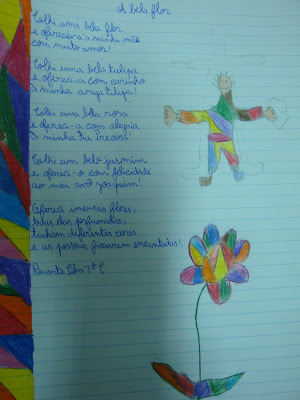 A bela flor
Colhi uma bela flor
e ofereci-a à minha mãe
com muito amor!
Colhi uma bela tulipa
e ofereci-a com carinho
à minha amiga Filipa!
Colhi uma bela rosa
e ofereci-a com alegria
à minha tia
Colhi um belo jasmim
e ofereci-o com felicidade
ao meu avô Joaquim!
Ofereci imensas flores,
todas elas perfumadas,
tinham diferentes cores
e as pessoas ficavam encantadas!
Duarte 3º C